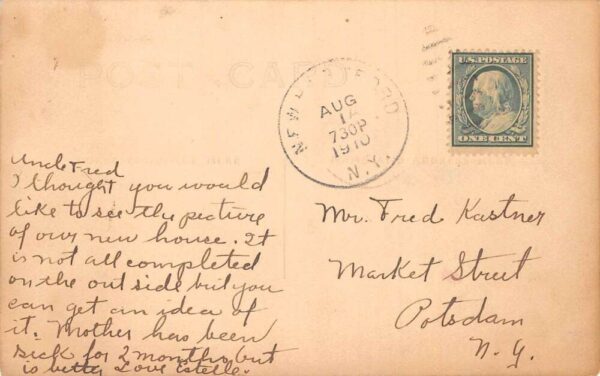 POST CARD
U.S. POSTAGE
ONE CENT
NEW
FORD
AUG
7 30P
1910
N.Y.
Uncle Fred
I thought you would
like to see the picture
of our new house. It
is not all completed
on the out side but you
can get an idea of
it. Mother has been
sick for 2 months but
is better Love Estelle.
Mr. Fred Kastner
Market Street
Potsdam
N.Y.